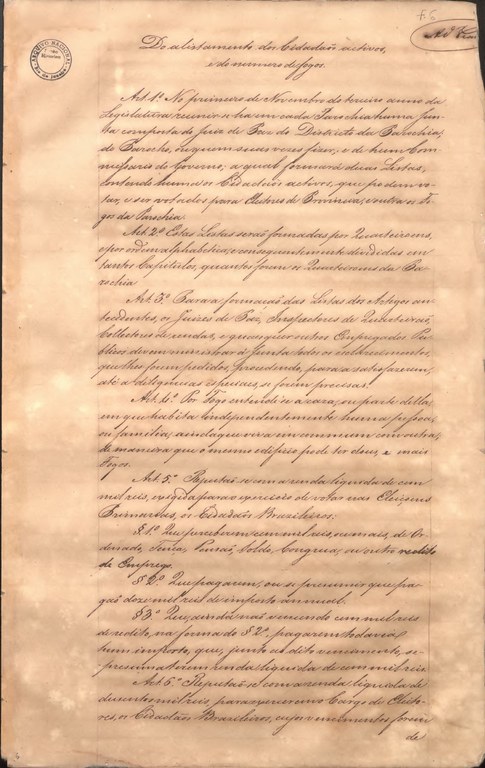 Do alistamento dos Cidadãos activos,
e do numero de fogos.
Art. 1º No primeiro de Novembro do terceiro anno da
Legislatura reunir-se-ha em cada Parochia huma Jun-
ta composta do Juiz de Paz do Districto da Parochia,
do Parocho, ou quem suas vezes fizer, e de hum Com-
missario do Governo, a qual formará duas Listas,
contendo huma os Cidadãos activos, que podem vo-
tar, e ser votados para Eleitores de Provincia, e outra os Fo-
gos da Parochia
Art. 2º Estas Listas serão formadas por Quarteirões,
e por ordem alphabetica, e consequentemente divididas em
tantos Capitulos, quantos forem os Quarteirões da Pa-
rochia
Art. 3º Para a formação das Listas dos Artigos an-
tecedentes, os Juizes de Paz, Inspectores de Quarteirão,
Collectores de rendas, e quaesquer outros Empregados Pu-
blicos devem ministrar á Junta todos os esclarecimentos,
que lhes forem pedidos, procedendo, para a satisfazerem,
até a diligencias especiaes, se forem precisas.
Art. 4º Por Fogo entende-se a casa, ou parte della,
em que habita independentemente huma pessoa,
ou familia, ainda que viva em commum com outra,
de maneira que o mesmo edificio pode ter dous, e mais
Fogos.
Art. 5º Reputão-se com a renda liquida de cem
mil reis, exigida para o exercicio de votar nas Eleições
Primarias, os Cidadãos Brasileiros.
§ 1º Que percebem cem mil reis, ou mais, de Or-
denado, Tença, Pensão, Soldo, Congrua, ou outro redito
de Emprego.
§ 2º Que pagarem, ou se presumir que pa-
gão doze mil reis de imposto annual.
§ 3º Que, ainda não vencendo cem mil reis
de redito, na forma do § 2º, pagarem todavia
hum imposto, que, junto ao dito vencimento, se
presuma terem renda liquida de cem mil reis.
Art. 6º Reputão-se com a renda liquida de
duzentos mil reis, para exercerem o Cargo de Eleito-
res, os Cidadãos Brasileiros, cujos vencimentos forem
de